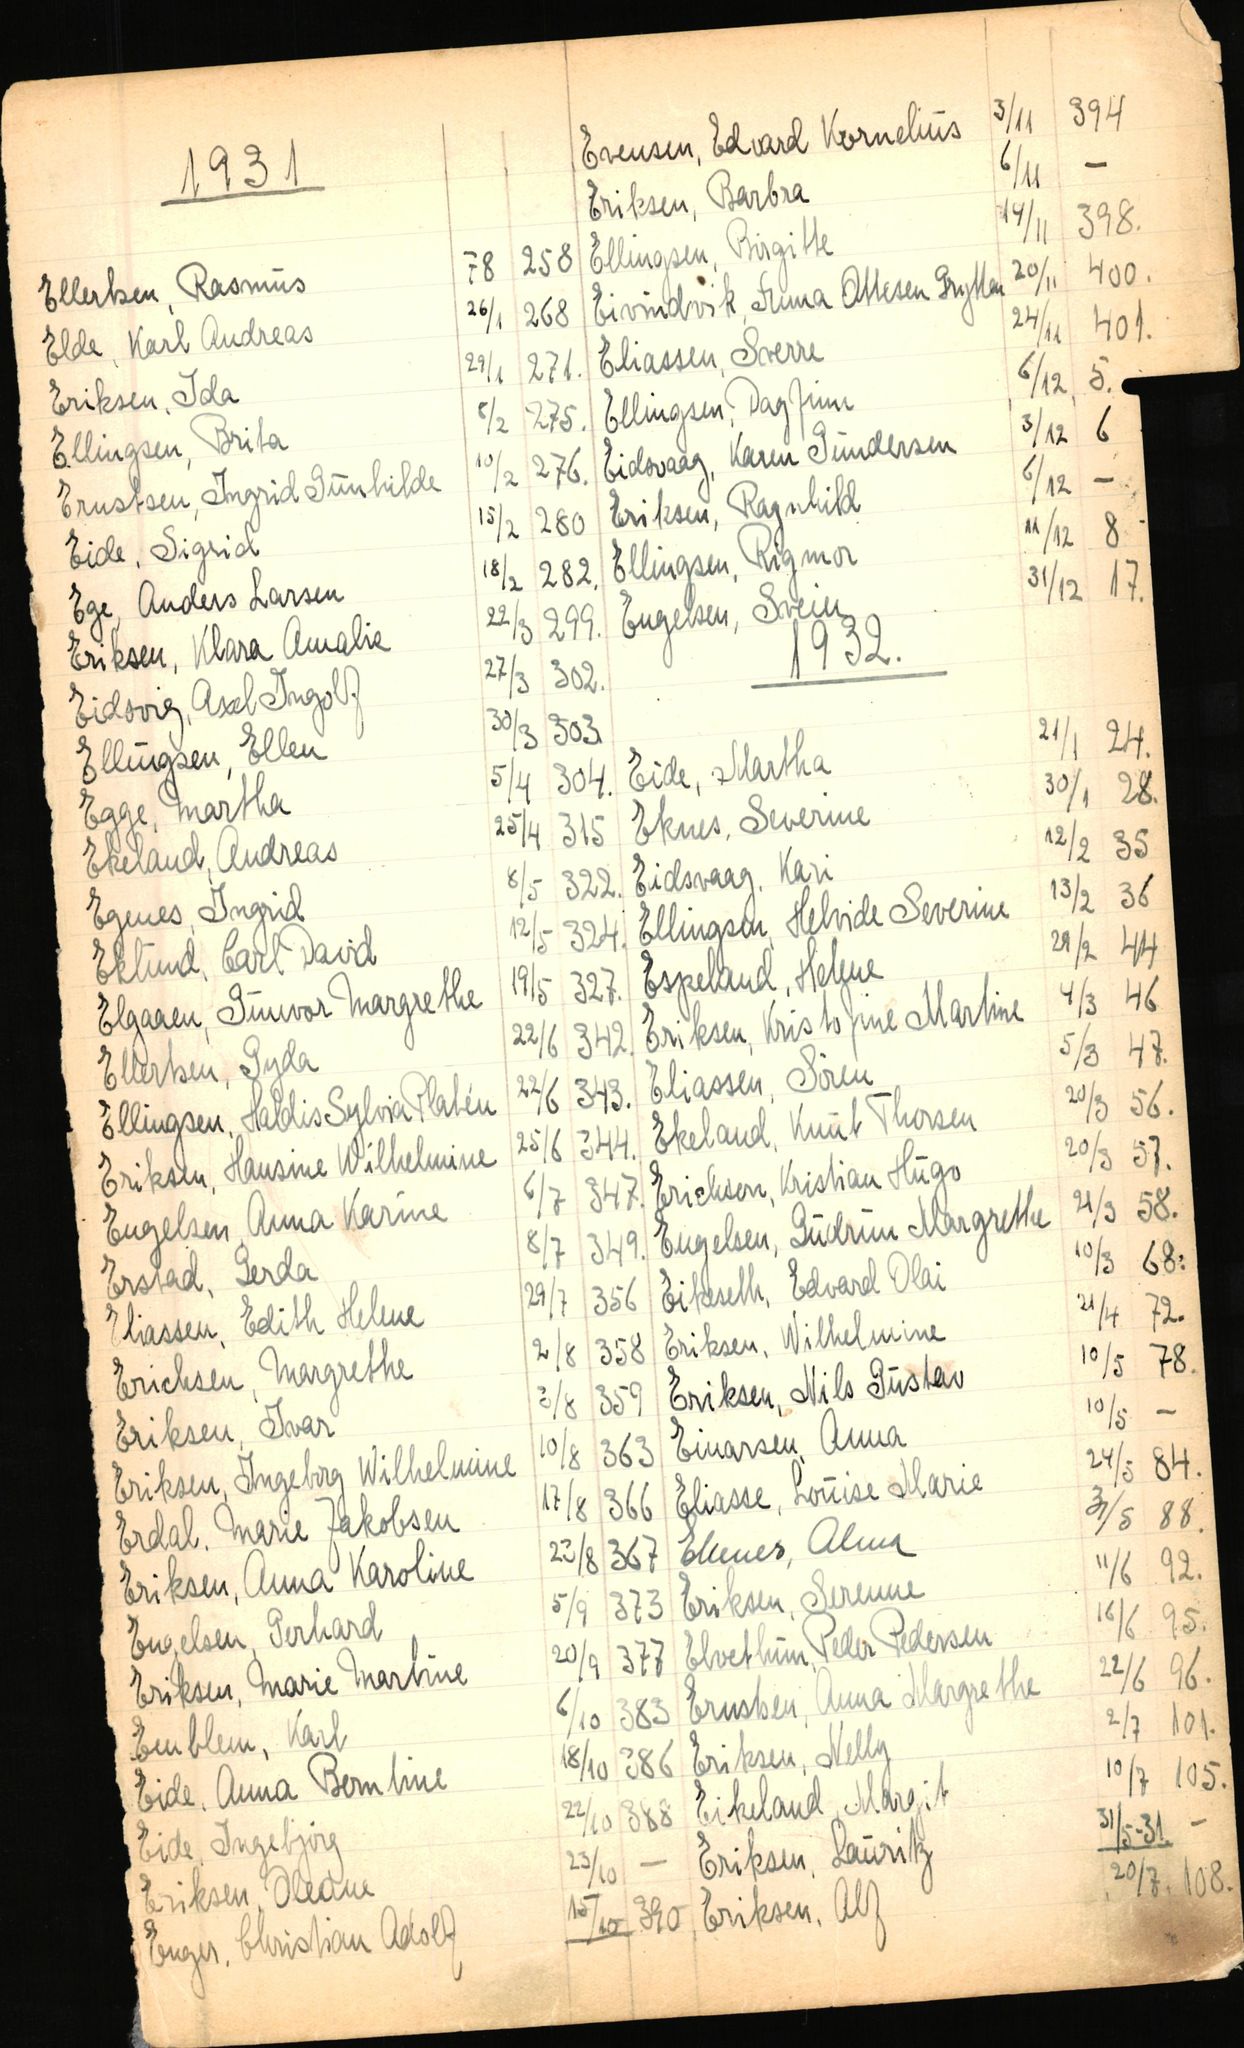 1931
Ellertsen, Rasmus 7/8 258
Elde, Karl Andreas 26/1 268
Eriksen, Ida 29/1 271.
Ellingsen, Brita 8/2 275.
Ernstsen, Ingrid Gunhilde 10/2 276.
Eide, Sigrid 15/2 280
Ege, Anders Larsen 18/2 282.
Eriksen, Klara Amalie 22/3 299.
Eidsvig, Axel Ingolf 27/3 302.
Ellingsen, Ellen 30/3 303
Egge, Martha 5/4 304.
Ekeland, Andreas 25/4 315
Egenes, Ingrid 8/5 322.
Eklund, Carl David 12/5 324.
Elgaaen, Gunvor Margrethe 19/5 327.
Ellertsen, Gyda 22/6 342.
Ellingsen, Haldis Sylvia Platén 22/6 343.
Eriksen, Hansine Wilhelmine 25/6 344.
Engelsen, Anna Karine 6/7 347.
Erstad, Gerda 8/7 349.
Eliassen, Edith Helene 29/7 356
Erichsen, Margrethe 2/8 358
Eriksen, Ivar 3/8 359
Eriksen, Ingeborg Wilhelmine 10/8 363
Erdal, Marie Jakobsen 17/8 366
Eriksen, Anna Karoline 23/8 367
Engelsen, Gerhard 5/9 373
Eriksen, Marie Martine 20/9 377
Emblem, Karl 6/10 383
Eide, Anna Berntine 18/10 386
Eide, Ingebjörg 22/10 388
Eriksen, Oledine 23/10 —
Enger, Christian Adolf 15/10 390
Evensen, Edvard Kornelius 3/11 394
Eriksen, Barbra 6/11 —
Ellingsen, Birgitte 14/11 398.
Eivindvik, Ottesen Grytten 20/11 400.
Eliassen, Sverre 24/11 401.
Ellingsen, Dagfinn 6/12 5.
Eidsvaag, Karen Gundersen 3/12 6
Eriksen, Ragnhild 6/12 —
Ellingsen, Rigmor 11/12 8
Engelsen, Svein 31/12 17.
1932.
Eide, Martha 21/1 24.
Eknes, Severine 30/1 28.
Eidsvaag, Kari 12/2 35
Ellingsen, Helvide Severine 13/2 36
Espeland, Helene 29/2 44
Eriksen, Kristofine Martine 4/3 46
Eliassen, Sören 5/3 47.
Ekeland, Knut Thorsen 20/3 56.
Erichsen, Kristian Hugo 20/3 57.
Engelsen, Gudrun Margrethe 21/3 58.
Eikeseth, Edvard Olai 10/3 68.
Eriksen, Wilhelmine 21/4 72.
Eriksen, Nils Gustav 10/5 78.
Einarsen, Anna 10/5 —
Eliasse, Louise Marie 24/5 84.
Eknes, Alma 31/5 88.
Eriksen, Serenne 11/6 92.
Elvethun, Peder Pedersen 16/6 95.
Ernstsen, Anna Margrethe 22/6 96.
Eriksen, Nelly 2/7 101.
Eikeland, Margit 10/7 105.
Eriksen, Lauritz 31/5-31 —
Eriksen, Alf 20/7. 108.